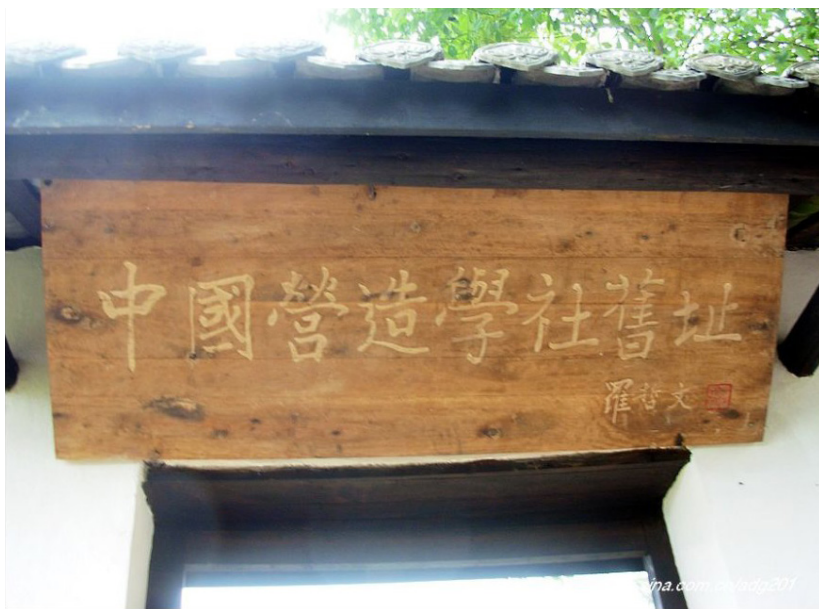 中國營造學社舊址
羅哲文
ina.com.cn/adg201